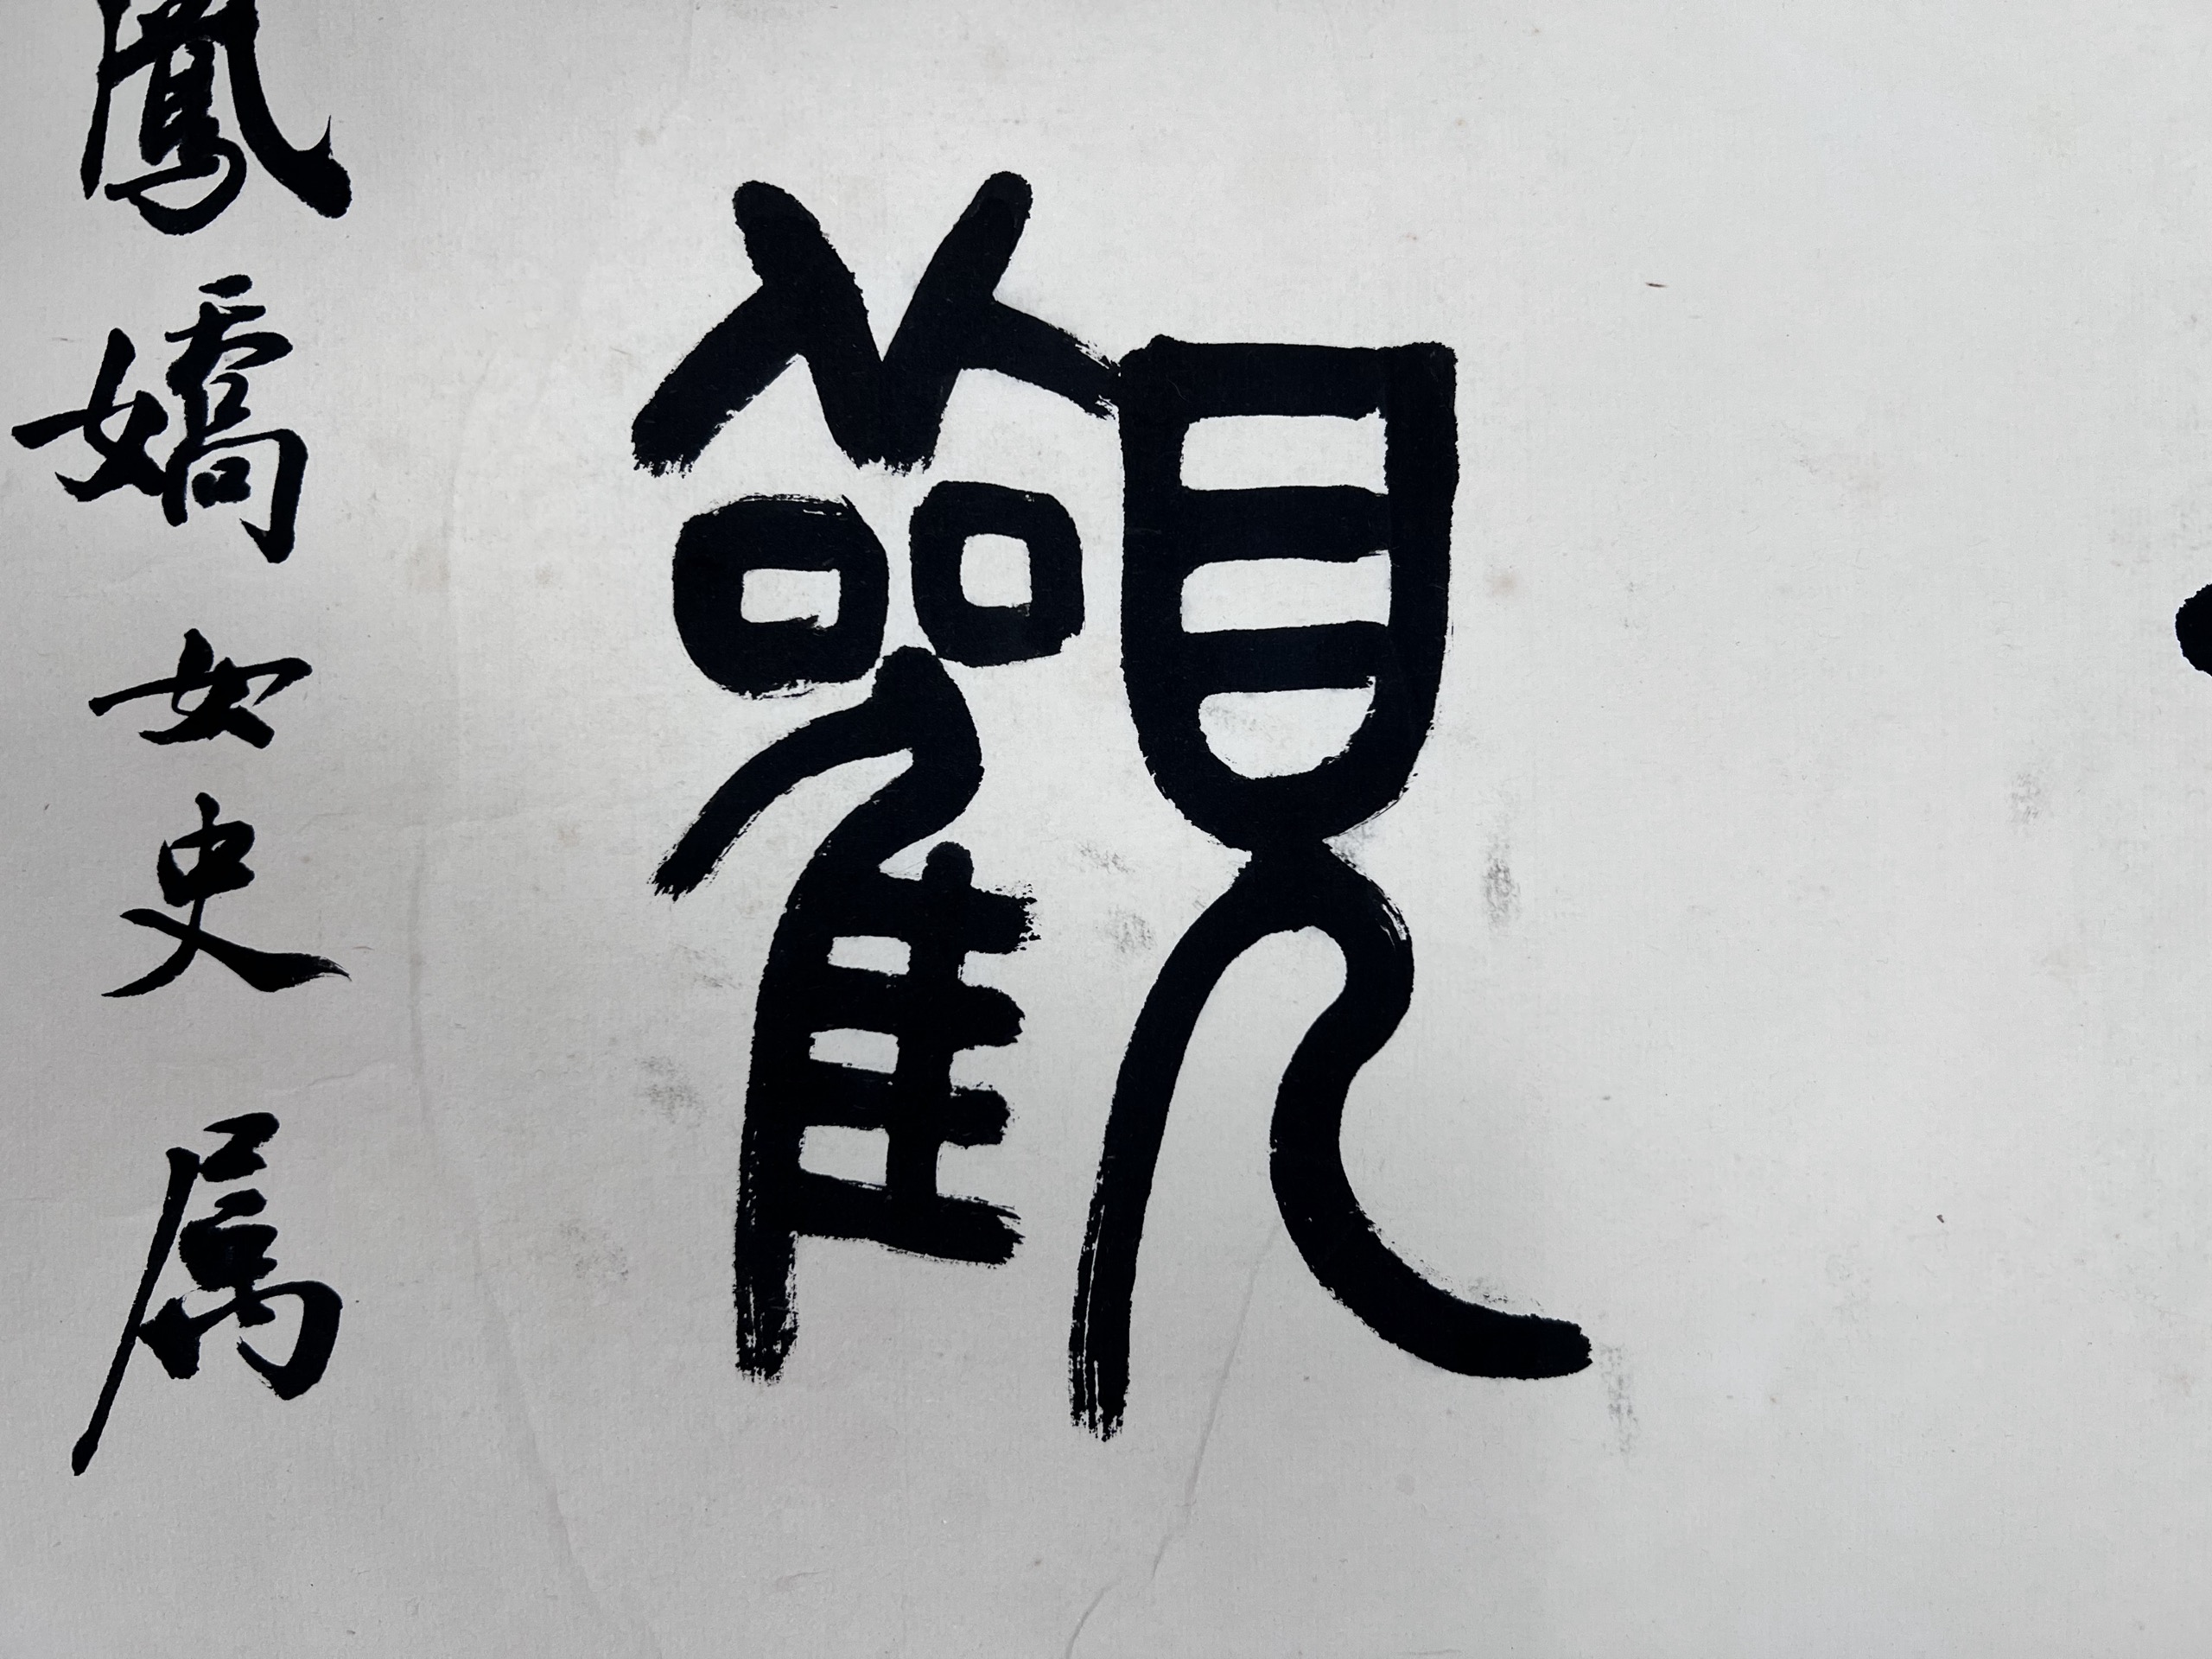 觀
鳳嬌女史属